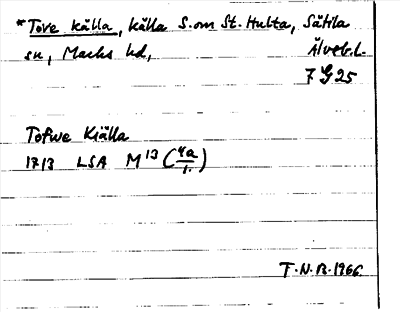 *Tove källa, källa S. om St. Hulta, Sätila
sn, Marks hd, Älvsb.l.
7 G 25
Tofwe Kiälla
1713 LSA M 13 (4a/1.)
T.N.B. 1966